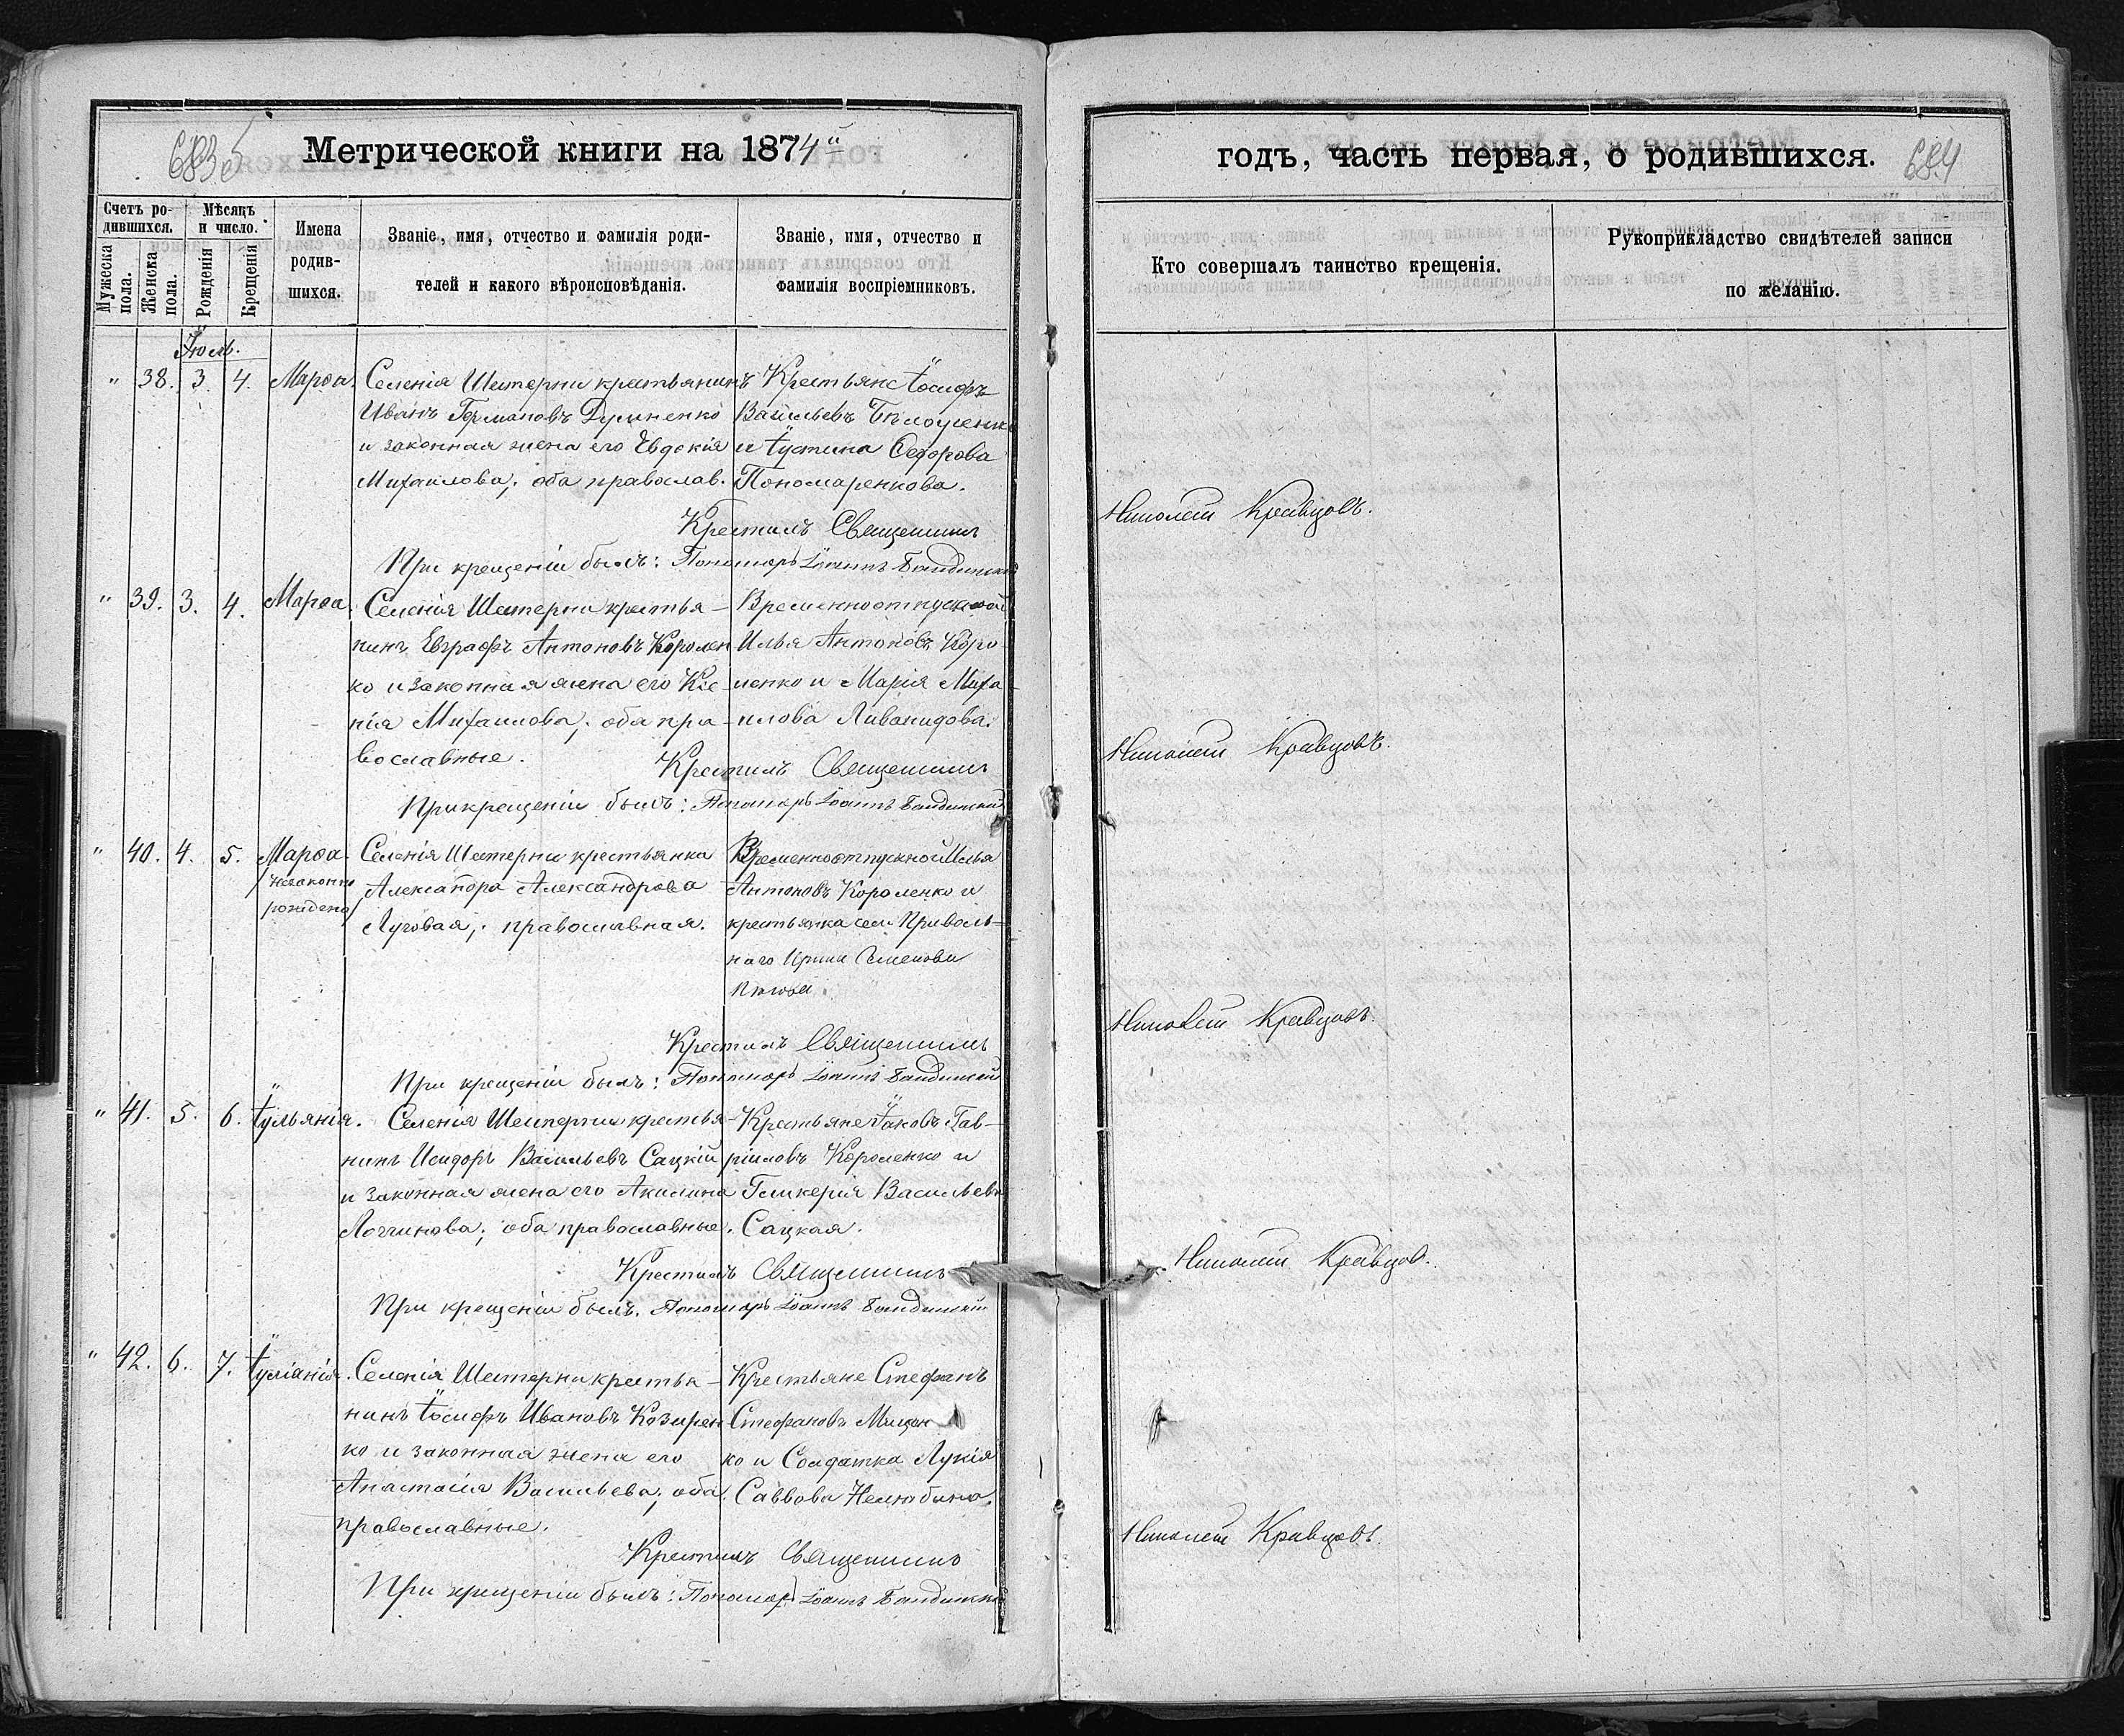 683 б
Метрической книги на 1874й
годъ, часть первая, о родившихся.
684
Счетъ родившихся.
Мужеска пола.
Женска пола.
Мѣсяцъ и число.
Рожденія
Крещенія
Имена родившихся.
Званіе, имя, отчество и фамилія родителей и какого вѣроисповѣданія.
Званіе, имя, отчество и фамилія воспріемниковъ.
Кто совершалъ таинство крещенія.
Рукоприкладство свидѣтелей записи по желанію.
Іюль.
" 38. 3. 4. Марѳа. Селенія Шестерни крестьянинъ
Иванъ Германовъ
и законная жена его Евдокія
Михаилова; оба православ.
Крестьяне Іосифъ
Васильевъ Бѣлоусенко
и Іустина Ѳедорова
Пономаренкова.
Крестилъ Священникъ
Николай Кравцовъ.
При крещеніи былъ: Пономарь Іоаннъ
" 39. 3. 4. Марѳа. Селенія Шестерни крестья-
нинъ Евграфъ Антоновъ Королен
ко и законная жена его Ксе-
нія Михаилова; оба пра-
вославные.
Временноотпускной
Илья Антоновъ Коро
ленко и Марія Миха-
илова Ливанидова.
Крестилъ Священникъ
Николай Кравцовъ.
При крещеніи былъ: Пономарь Іоаннъ
" 40. 4. 5. Марѳа.
незаконно
рождена
Селенія Шестерни крестьянка
Александра Александрова
Луговая; православная.
Временноотпускной Илья
Антоновъ Короленко и
крестьянка сел. Приволь-
наго Ирина Семенова
Крестилъ Священникъ
Николай Кравцовъ.
При крещеніи былъ: Пономарь Іоаннъ
" 41. 5. 6. Іульянія. Селенія Шестерни крестья-
нинъ Исидоръ Васильевъ Сацкій
и законная жена его Акилина
Логгинова; оба православные.
Крестьяне Іаковъ Гав-
ріиловъ Короленко и
Гликерія Васильева
Сацкая.
Крестилъ Священникъ
Николай Кравцовъ.
При крещеніи былъ. Пономарь Іоаннъ
" 42. 6. 7. Іуліанія. Селенія Шестерни крестья-
нинъ Іосифъ Ивановъ Козирен
ко и законная жена его
Анастасія Васильева; оба
православные.
Крестьяне Стефанъ
Стефановъ Мищен
ко и Солдатка Лукія
Саввова Нелюбина.
Крестилъ Священникъ
Николай Кравцовъ.
При крещеніи былъ: Пономарь Іоаннъ